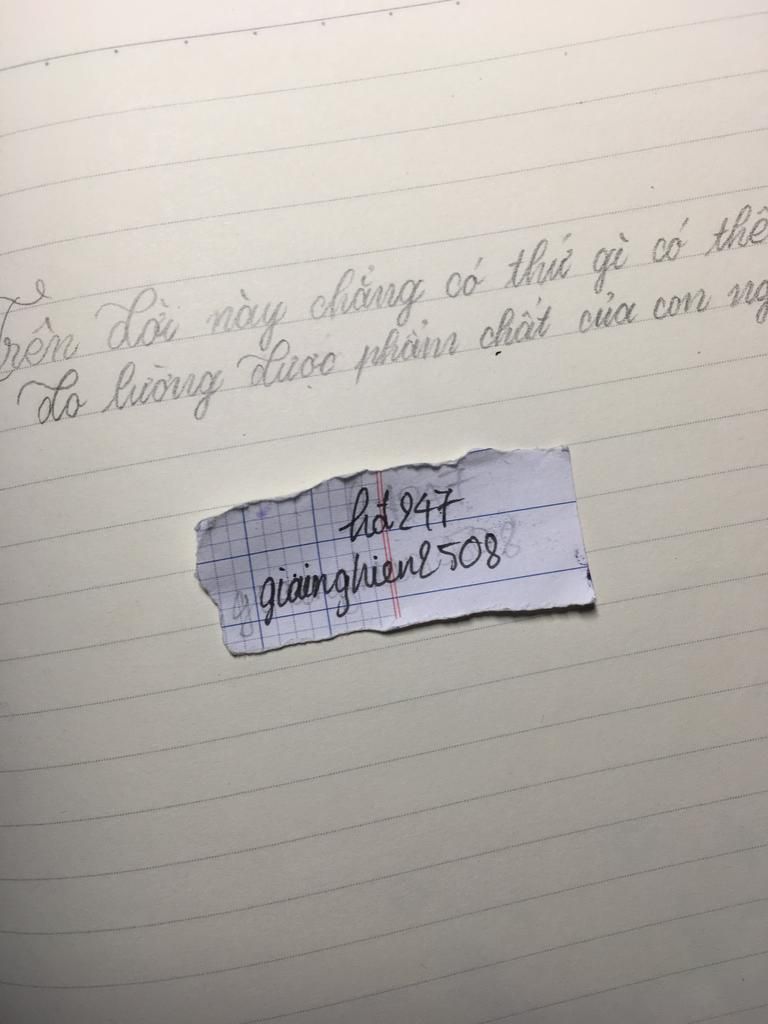 Trên đời này chẳng có thứ gì có thể
đo lường được phẩm chất của con ng
hđ247
giainghien2508